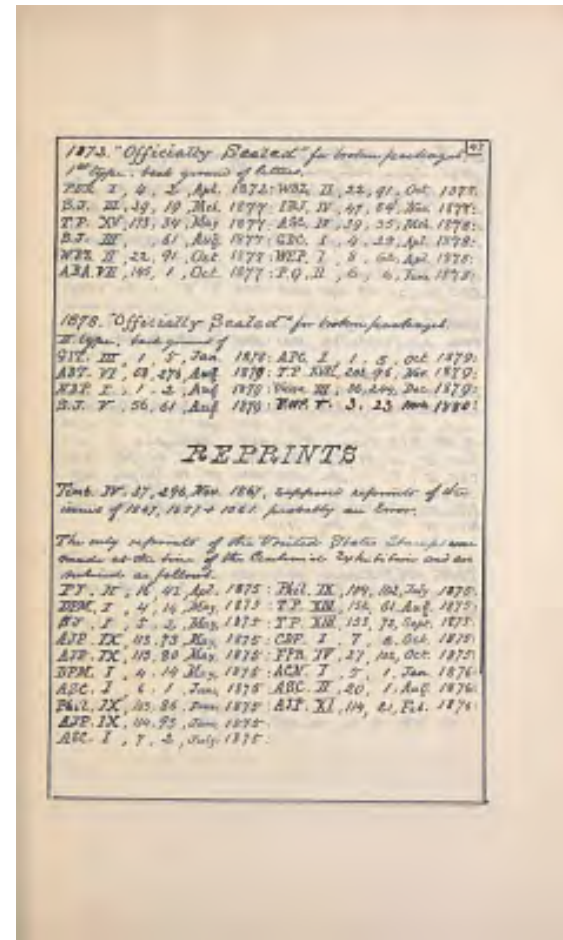 47
1873. "Officially Sealed" for broken packages.
1st type, back ground of letters.
PER. I, 4, 2, Apl. 1872: WBZ. II, 22, 91, Oct 1877.
S.J. III, 39, 19, Mch. 1877: IBJ. IV, 47, 54, Nov. 1877:
T.P. XV, 173, 34, May 1877: ASC. IV, 39, 35, Mch. 1878:
S.J. III, , 61, Aug. 1877: GBC. I, 4, 29, Apl. 1878:
WBZ. II, 22, 91, Oct. 1877: WEP. I, 8, 62, Apl. 1878:
ABA. VII, 145, 1, Oct. 1877: P.Q. II, 6, 6, June 1878:
1878. "Officially Sealed" for broken packages.
II type, back ground of
GIT. III, 1, 5, Jan. 1878: APC. I, 1, 5, Oct 1879:
ABT. VI, 68, 276, Aug 1879: T.P. XVII, 202, 96, Nov. 1879:
NBP. I, 1, 2, Aug 1879: III, 36, 244, Dec. 1879:
S.J. V, 56, 61, Aug 1879: V. 3, 23 1880:
REPRINTS
Timb. IV. 37, 296, Nov. 1867, supposed reprints of the
issues of 1847, 1857 & 1861. probably an Error.
The only reprints of the United States Stamps were
made at the time of the Centennial Exhibition and are
noticed as follows.
P.J. II, 16, 42, Apl. 1875: Phil. IX, 104, 102, July 1875:
DPM. I, 4, 14, May, 1875: T.P. XIII, 152, 61, Aug. 1875:
I, 5, 2, May, 1875: T.P. XIII, 153, 72, Sept. 1875:
AJP. IX, 113, 73, May, 1875: CDP. I, 7, 8, Oct. 1875:
AJP. IX, 113, 80, May, 1875: FPR. IV, 27, 102, Oct. 1875:
DPM. I, 4, 14, May, 1875: ACN. I, 5, 1, Jan. 1876:
ABC. I, 6, 1, June, 1875: ABC. II, 20, 1, Aug. 1876:
Phil. IX, 103, 86, June 1875: AJP. XI, 114, 21, Feb. 1876:
AJP. IX, 114, 95, June 1875:
ABC. I, 7, 2, July, 1875: